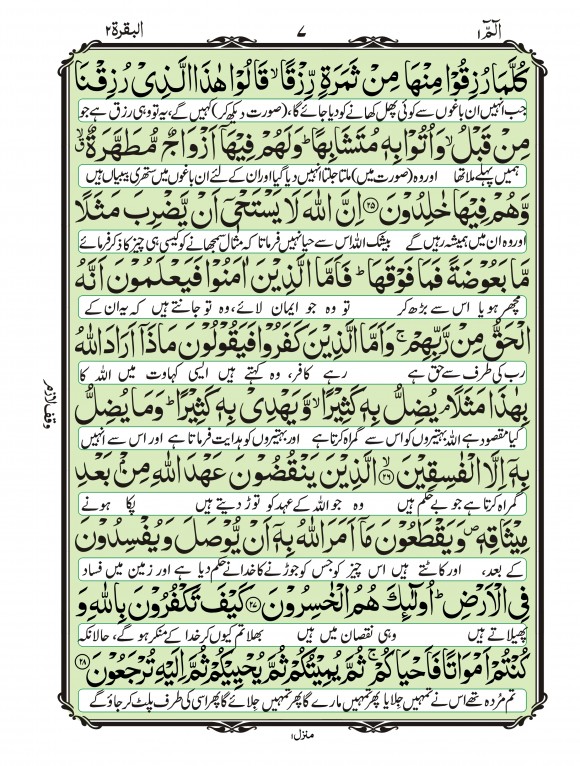 الٓمّٓ ١ ٧ البقرة ٢
كُلَّمَا رُزِقُوۡا مِنۡهَا مِنۡ ثَمَرَةٍ رِّزۡقًا ۙ قَالُوۡا هٰذَا الَّذِىۡ رُزِقۡنَا
جب انہیں ان باغوں سے کوئی پھل کھانے کو دیا جائے گا، (صورت دیکھ کر) کہیں گے، یہ تو وہی رزق ہے جو
مِنۡ قَبۡلُ ۙ وَاُتُوۡا بِهٖ مُتَشَابِهًا ؕ وَلَهُمۡ فِيۡهَآ اَزۡوَاجٌ مُّطَهَّرَةٌ ۙۗ
ہمیں پہلے ملا تھا اور وہ (صورت میں) ملتا جلتا انہیں دیا گیا اور ان کے لئے ان باغوں میں ستھری بیبیاں ہیں
وَّهُمۡ فِيۡهَا خٰلِدُوۡنَ ﴿۲۵﴾ اِنَّ اللّٰهَ لَا يَسۡتَحۡىٖۤ اَنۡ يَّضۡرِبَ مَثَلًا
اور وہ ان میں ہمیشہ رہیں گے بیشک اللہ اس سے حیا نہیں فرماتا کہ مثال سمجھانے کو کیسی ہی چیز کا ذکر فرمائے
مَّا بَعُوۡضَةً فَمَا فَوۡقَهَا ؕ فَاَمَّا الَّذِيۡنَ اٰمَنُوۡا فَيَعۡلَمُوۡنَ اَنَّهُ
مچھر ہو یا اس سے بڑھ کر تو وہ جو ایمان لائے، وہ تو جانتے ہیں کہ یہ ان کے
الۡحَقُّ مِنۡ رَّبِّهِمۡ ۚ وَاَمَّا الَّذِيۡنَ كَفَرُوۡا فَيَقُوۡلُوۡنَ مَاذَآ اَرَادَ اللّٰهُ
رب کی طرف سے حق ہے رہے کافر، وہ کہتے ہیں ایسی کہاوت میں اللہ کا
بِهٰذَا مَثَلًا ۘ يُضِلُّ بِهٖ كَثِيۡرًا ۙ وَّيَهۡدِىۡ بِهٖ كَثِيۡرًا ؕ وَمَا يُضِلُّ
کیا مقصود ہے اللہ بہتیروں کو اس سے گمراہ کرتا ہے اور بہتیروں کو ہدایت فرماتا ہے اور اس سے انہیں
بِهٖۤ اِلَّا الۡفٰسِقِيۡنَ ﴿۲۶﴾ الَّذِيۡنَ يَنۡقُضُوۡنَ عَهۡدَ اللّٰهِ مِنۡۢ بَعۡدِ
گمراہ کرتا ہے جو بے حکم ہیں وہ جو اللہ کے عہد کو توڑ دیتے ہیں پکا ہونے
مِيۡثَاقِهٖ ۪ وَيَقۡطَعُوۡنَ مَآ اَمَرَ اللّٰهُ بِهٖۤ اَنۡ يُّوۡصَلَ وَيُفۡسِدُوۡنَ
کے بعد، اور کاٹتے ہیں اس چیز کو جس کو جوڑنے کا خدا نے حکم دیا ہے اور زمین میں فساد
فِى الۡاَرۡضِ ؕ اُولٰٓئِكَ هُمُ الۡخٰسِرُوۡنَ ﴿۲۷﴾ كَيۡفَ تَكۡفُرُوۡنَ بِاللّٰهِ وَ
پھیلاتے ہیں وہی نقصان میں ہیں بھلا تم کیوں کر خدا کے منکر ہو گے، حالانکہ
كُنۡتُمۡ اَمۡوَاتًا فَاَحۡيَاكُمۡ ۚ ثُمَّ يُمِيۡتُكُمۡ ثُمَّ يُحۡيِيۡكُمۡ ثُمَّ اِلَيۡهِ تُرۡجَعُوۡنَ ﴿۲۸﴾
تم مردہ تھے اس نے تمہیں جِلایا پھر تمہیں مارے گا پھر تمہیں جِلائے گا پھر اسی کی طرف پلٹ کر جاؤ گے
وقف لازم
منزل ۱